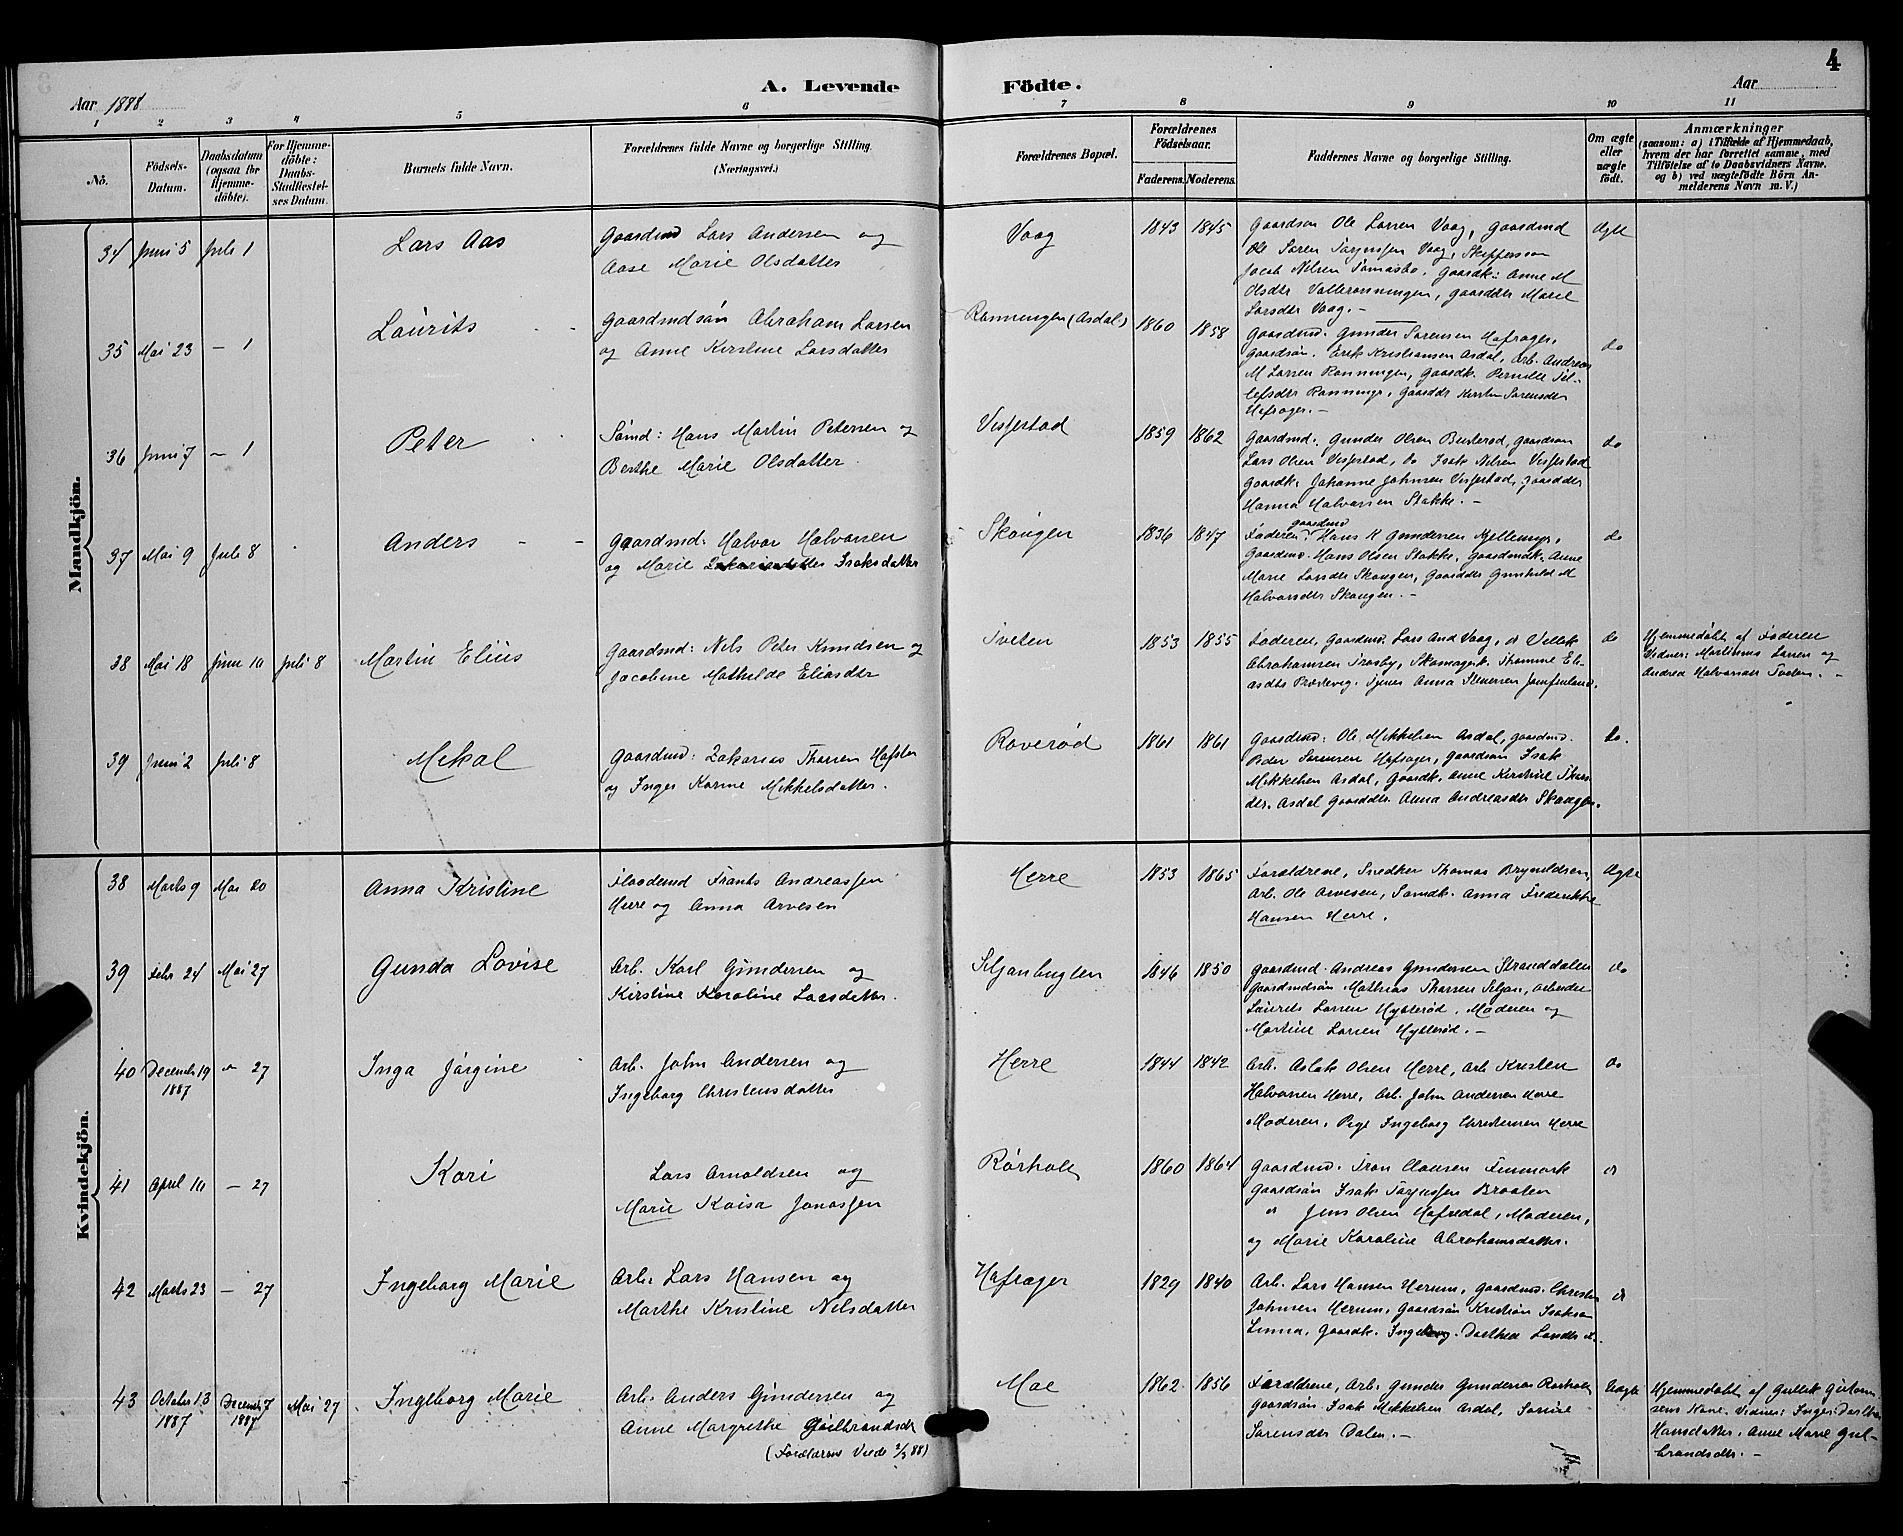 4
Aar 1888
A. Levende Födte.
Aar
1 2 3 4 5 6 7 8 9 10 11
No.
Födsels-Datum.
Daabsdatum (ogsaa for Hjemme-döbte).
For Hjemme-döbte: Daabs-Stadfæstel-ses Datum.
Barnets fulde Navn.
Forældrenes fulde Navne og borgerlige Stilling. (Næringsvei.)
Forældrenes Bopæl.
Forældrenes Födselsaar.
Faderens. Moderens.
Faddernes Navne og borgerlige Stilling.
Om ægte eller uægte födt.
Anmærkninger
(saasom: a) i Tilfælde af Hjemmedaab, hvem der har forrettet samme, med Tilföielse af to Daabsvidners Navne. og b) ved uægtefödte Börn An-melderens Navn m. V.)
Mandkjön.
34 Juni 5 Juli 1 Lars Aas
Gaardmd Lars Andersen og
Aase Marie Olsdatter
Vaag 1843 1845
Gaardsøn Ole Larsen Vaag, Gaardmd
Ole Søren Torjussen Vaag, Skippersøn
Jacob Nilsen Tomasbo, Gaardk: Anne M
Olsdtr Vallerønningen, Gaarddtr Marie
Larsdtr Vaag. -
Ægte
35 Mai 23 - 1 Laurits
Gaardmdsøn Abraham Larsen
og Anne Kirstine Larsdatter
Rønningen (Asdal) 1860 1858
Gaardmd. Gunder Sørensen Hafrager,
Gaardsøn. Erik Kristiansen Asdal, Arb. Andreas
M Larsen Rønningen, Gaardk. Pernille Til-
lefsdtr Rønninge, Gaarddtr Kirsten Sørensdtr
Hafrager. -
do
36 Juni 7 - 1 Peter
Sømd: Hans Martin Petersen og
Berthe Marie Olsdatter
Vissestad 1859 1862
Gaardmd: Gunder Olsen Busterød, Gaardsøn
Lars Olsen Vissestad, do Isak Nilsen Vissestad
Gaardk: Johanne Johnsen Vissestad, Gaarddtr
Hanna Halvorsen Stokke. -
do
37 Mai 9 Juli 8 Anders
Gaardmd: Halvor Halvorsen
og Marie Isaksdatter
Skougen 1836 1847
Faderen, Gaardmd Hans H Gundersen Kjellemyr,
Gaardmd. Hans Olsen Stokke, Gaardmdk. Anne
Marie Larsdtr Skougen, Gaarddtr Gunhild M
Halvorsdtr Skougen. -
do
38 Mai 18 Juni 10 Juli 8 Martin Elius
Gaardmd: Nils Peter Knudsen og
Jacobine Mathilde Eliasdtr
Tveten 1853 1855
Faderen, Gaardmd: Lars And Vaag, do
Abrahamsen Trosby, Skomagerk. Thomine Eli-
asdtr, Tjenes Anna Jomfruland.
do
Hjemmedøbt af Faderen
Vidner: Larsen og
Andrea Halvorsdtr Tveten. -
39 Juni 2 Juli 8 Mekal
Gaardmd: Zakarias Thorsen Hafsten
og Inger Karine Mikkelsdatter.
Roverød 1861 1861
Gaardmd: Ole Mikkelsen Asdal, Gaardmd.
Peder Sørensen Hafrager, Gaardsøn Isak
Mikkelsen Asdal, Gaardk. Anne Kirstine Thors-
dtr. Asdal Gaarddtr. Anna Andreasdtr Skougen.
do.
Kvindekjön.
38 Marts 9 Mai 20 Anna Kristine
Frants Andreassen
Herre og Anna Arvesen
Herre 1853 1865
Forældrene, Snedker Thomas Brynildsen,
Arb. Ole Arvesen, Sømdk. Anna Frederikke
Hansen Herre.
Ægte
39 Febr 24 Mai 27 Gunda Lovise
Arb. Karl Gundersen og
Kirstine Karoline Larsdatter.
Siljanbugten 1846 1850
Gaardmd. Andreas Gundersen Stranddalen
Gaardmdsøn Mathias Thorsen Siljan, Arbeider
Laurits Larsen Hysterød, Moderen og
Martine Larsen Hysterød. -
do
40 December 19 1887 - 27 Inga Jørgine
Arb. John Andersen og
Ingeborg Christensdatter
Herre 1844 1842
Arb. Aslak Olsen Herre, Arb Kristen
Halvorsen Herre, Arb. John Andersen Herre
Moderen, Pige Ingeborg Christensen Herre
do
41 April 10 - 27 Kari
Lars Arnoldsen og
Marie Kaisa Jonassen
Rørholt 1860 1864
Gaardmd. Tron Clausen Finmark
Gaardsøn Isak Torjussen Braaten
do Jens Olsen Hafredal, Moderen,
og Marie Karoline Abrahamsdatter.
do
42 Marts 23 - 27 Ingeborg Marie
Arb: Lars Hansen og
Marthe Kristine Nilsdatter
Hafrager 1829 1840
Arb. Lars Hansen Herum, Gaardmd: Christen
Johnsen Herum, Gaardsøn Kristian Isaksen
Linna, Gaardk. Ingeborg Dorthea
do
43 October 13 1887 December 7 1887 Mai 27 Ingeborg Marie
Arb. Anders Gundersen og
Anne Margrethe Gulbrandsdtr
(Forældrene Viede 2/3 88)
Moe 1862 1856
Forældrene, Arb. Gunder Gundersen Rørholt
Gaardsøn Isak Mikkelsen Asdal, Sørine
Sørensdtr Dalen. -
Uægte
Hjemmedøbt af Gullik
sens Kone. Vidner: Inger Dorthea
Hansdatter, Anne Marie Gul-
brandsdtr. -